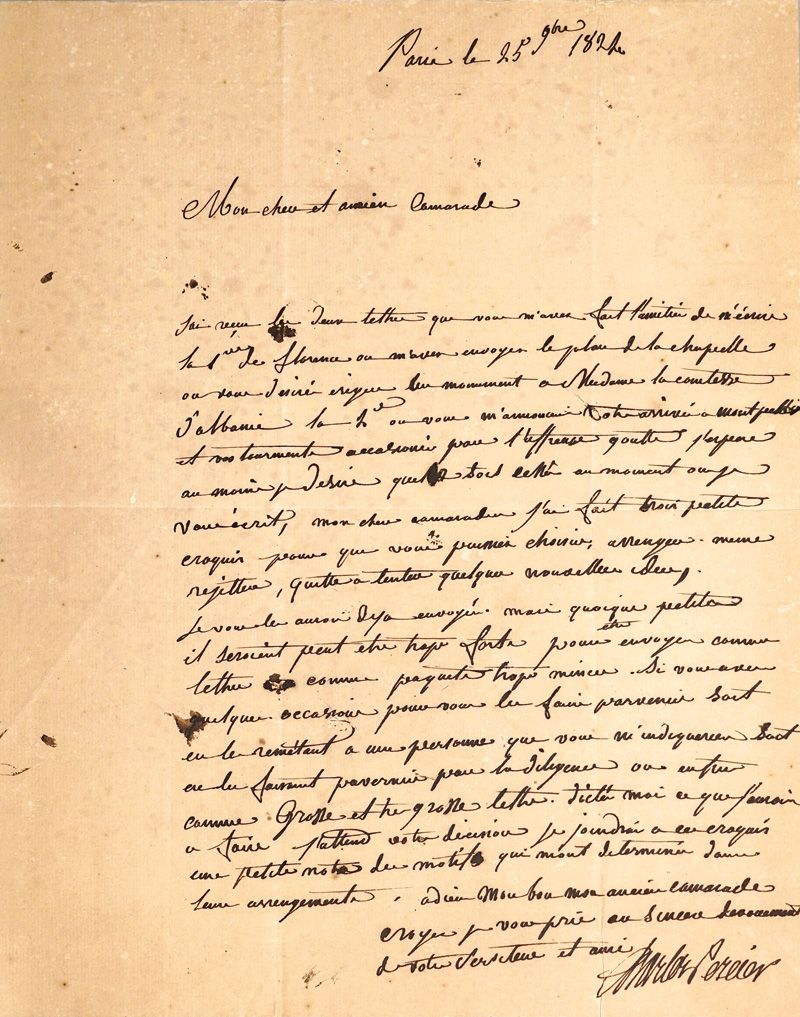 Paris le 25 9bre 1824
Mon cher et ancien Camarade
J'ai recu les deux lettre que vous m'aves fait l'amitié de m'écrire
la 1ere de florence ou m'aves envoyer le plan de la chapelle
ou vous desiré eriger un monument a Madame la comtesse
d'albanie la 2e ou vous m'annoncair votre arrivée a montpellier
et vos tourments occasionés pour l'affreuse goutte j'espere
au moins je desire quelle soit cessée au moment ou je
vous écrit, mon cher camarade j'ai fait trois petits
croquis pour que vous puissies choisir, arranger. meme
rejetter, quitte a tenter quelques nouvelles idees,
Je vous les aurois deja envoyé. mais quoique petites
il seroient peut etre trope forts pour etre envoyer comme
lettre comme paquets trope minces. Si vous aves
quelque occasions pour vous les faire parvenir soit
en les remétant a une personne que vous m'indiqueriez soit
en les faisant parvenir pour la diligence ou enfin
comme Grosse et tres grosse lettre. dictés moi ce que j'aurois
a faire j'attend votre decision je joindrai a ces croquis
une petite note des motifs qui m'ont determinés dans
leurs arrengements. adieu Mon bon mon ancien camarade
croyes je vous prie au sincere devouement
de votre serviteur et ami
Charles Percier